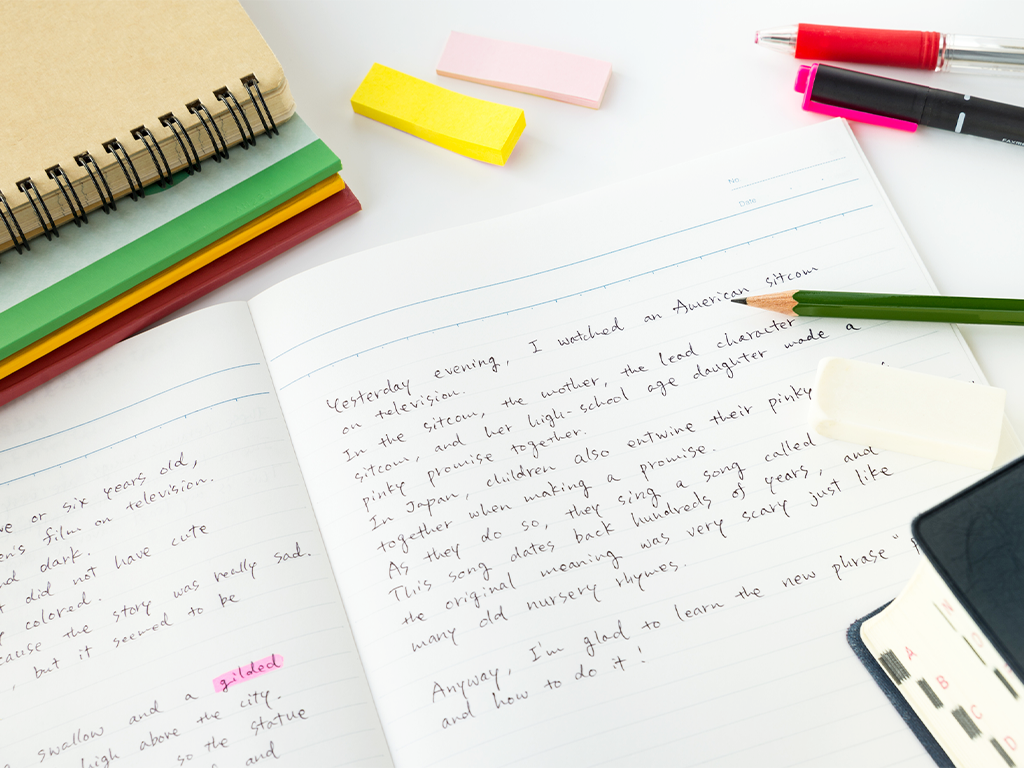 ve or six years old,
film on television.
dark.
did not have cute
colored.
the story was really sad.
, but it seemed to be
swallow and a gilded
high above the city.
so the statue
and
No.
Date
Yesterday evening, I watched an American sitcom
on television.
In the sitcom, the mother, the lead character
sitcom, and her high-school age daughter made a
pinky promise together.
In Japan, children also entwine their pinky
together when making a promise.
As they do so, they sing a song called
This song dates back hundreds of years, and
the original meaning was very scary just like
many old nursery rhymes.
Anyway, I'm glad to learn the new phrase "
and how to do it!
N
A
B
C
D